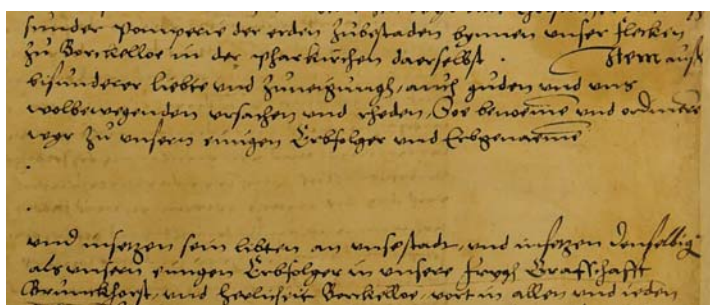 sunder Pomperie der erden zubestaden bynnen unser flecken
zu Borckelloe in der pharkirchen daerselbst. Item auß
bisunderer liebte und zuneigungh, auch guden und uns
wolbewegenden ursachen und rheden, Soe benoemen und ordinere
wyr zu unsern einigen Erbfolger und Erbgenaeme
.
.
und insetzen sein libten an unse stadt, und insetzen denselbig
als unsern einigen Erbfolger in unsere Graffschafft
Brunckhorst, und herlicheit Borckelloe, vort in allen und ieden